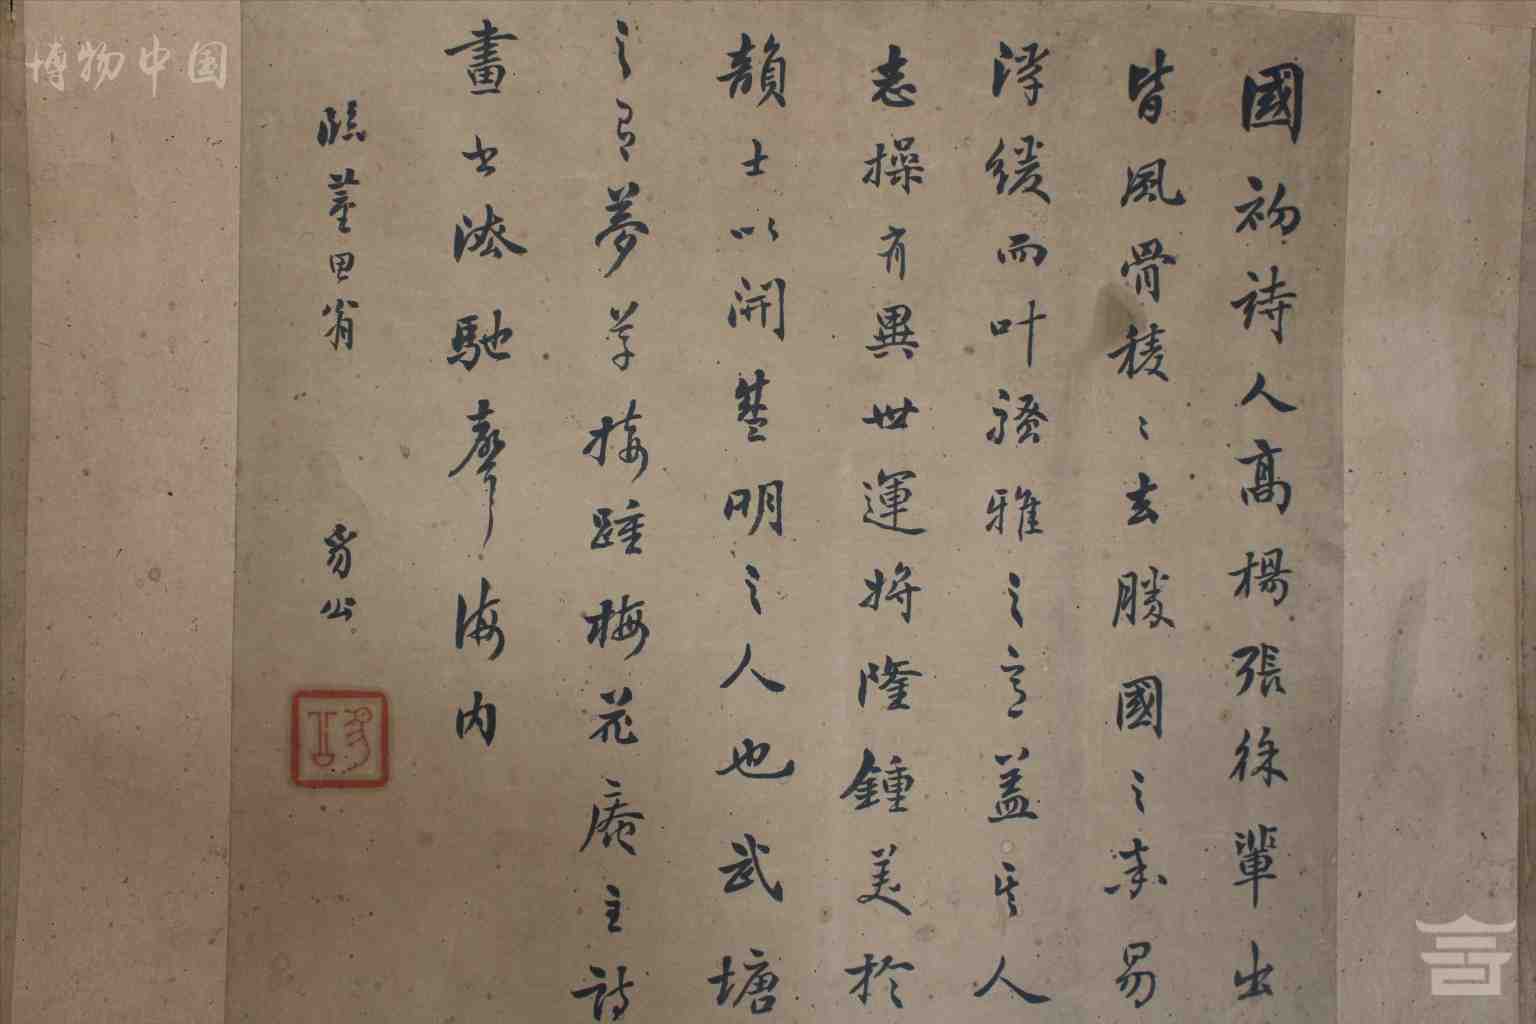 國初詩人高楊張徐輩出
皆風骨稜〻去勝國之率易
浮緩而叶騷雅之音蓋其人
志操有異世運將隆鍾美於
韻士以開楚明之人也武塘
之有夢草接踵梅花庵主詩
畫書法馳聲海内
臨董思翁
易公
博物中国